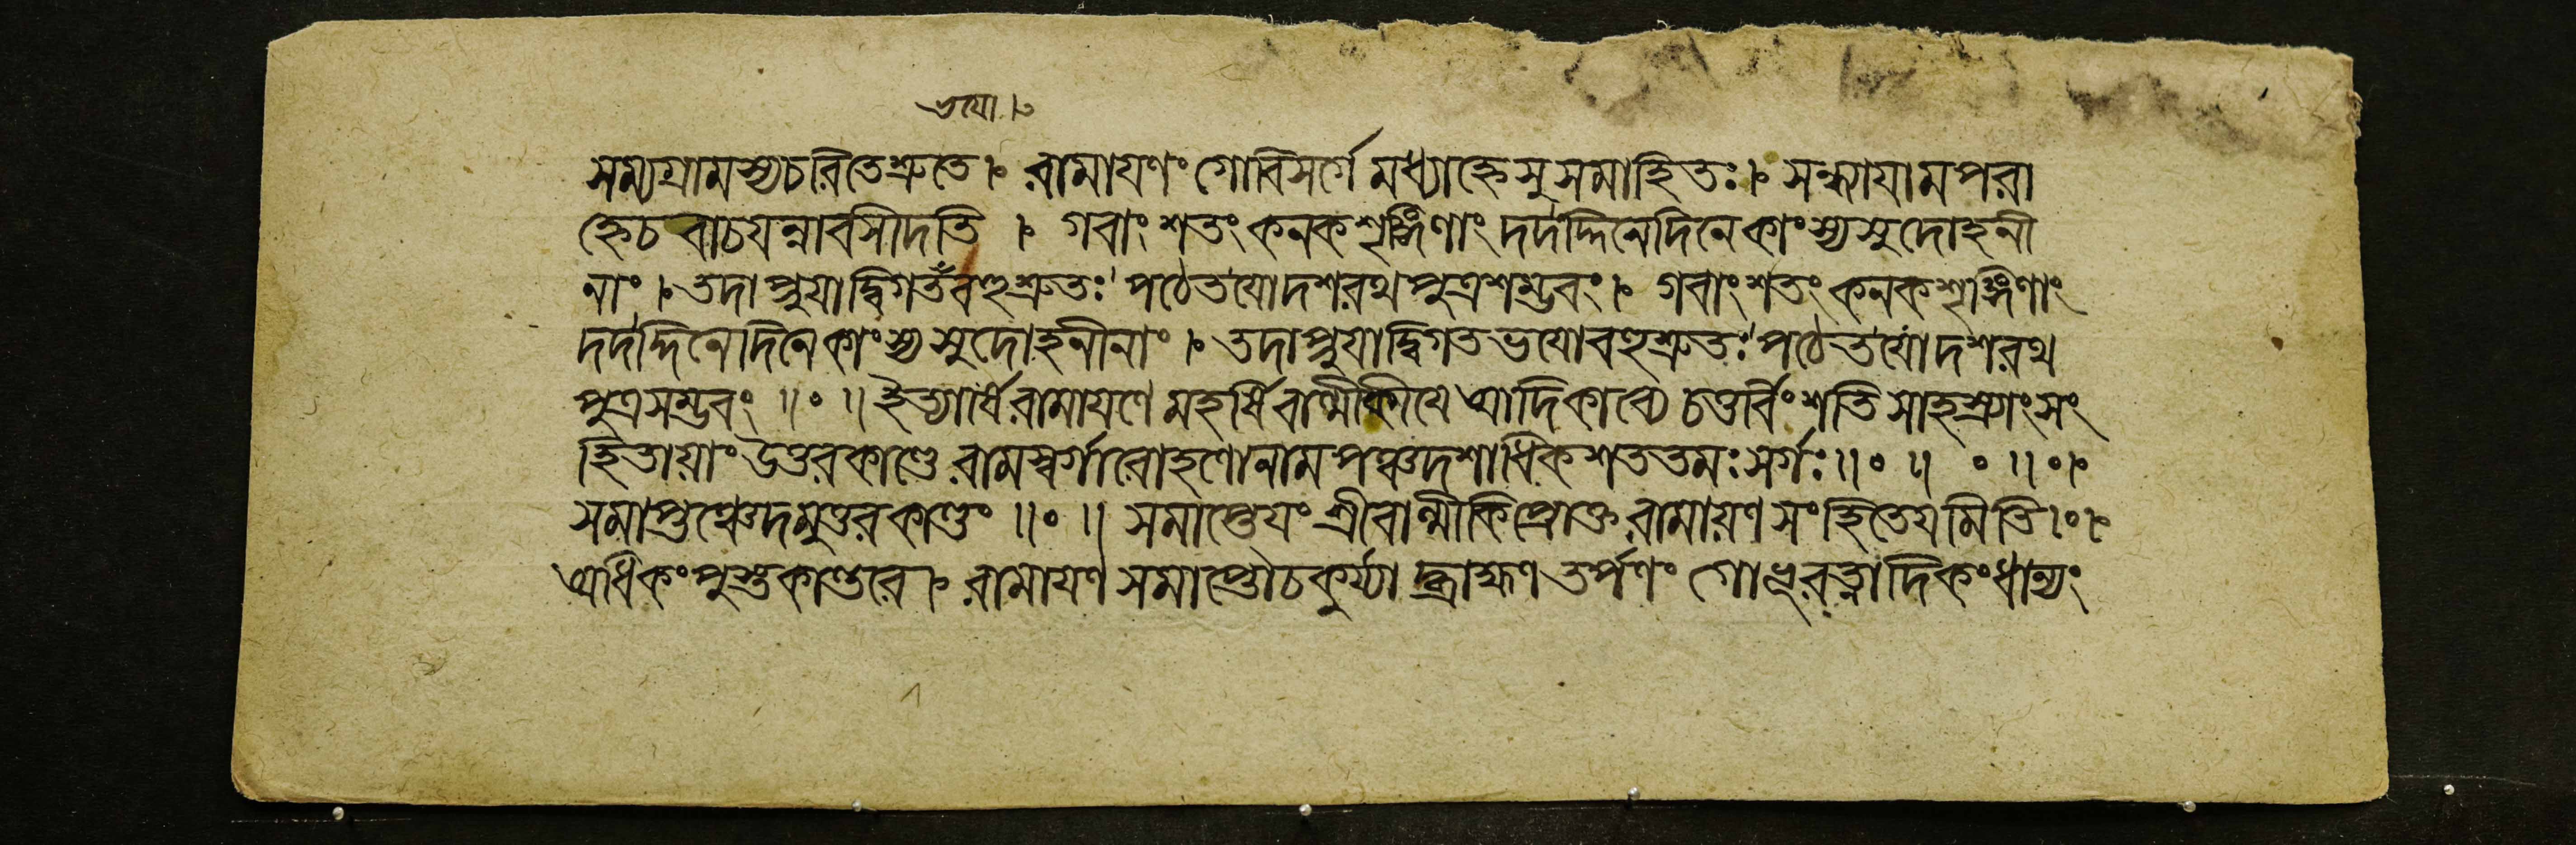 ভযো ।
সম্যগ্রামস্যচরিতেশ্রুতে । রামাযণং গোবিসর্গে মধ্যাহ্নেসুসমাহিতঃ । সন্ধ্যাযামপরা
হ্নেচ বাচযন্নাবসীদতি । গবাং শতং কনকশৃঙ্গিণাং দর্দাদ্দিনেদিনে কাংস্যসুদোহনী
নাং । তদাপ্নুযাদ্বিগতঁবহুশ্রুতঃ পঠেতযোদশরথপুত্রশম্ভবং । গবাংশতং কনকশৃঙ্গিণাং
দর্দাদ্দিনেদিনে কাংস্যসুদোহনীনাং । তদাপ্নুযাদ্বিগতভযোবহুশ্রুতঃ পঠেতযোদশরথ
পুত্রসম্ভবং ॥ ০ ॥ ইত্যার্ষেরামাযণে মহর্ষিবাল্মীকীযে আদিকাব্যে চতুর্বিংশতিসাহস্র্যাংসং
হিতায়াং উত্তরকাণ্ডে রামস্বর্গারোহণোনাম পঞ্চদশাধিকশততমঃ সর্গঃ ॥ ০ ॥ ০ ॥ ০ ।
সমাপ্তঞ্চেদমুত্তরকাণ্ডং ॥ ০ ॥ সমাপ্তেযং শ্রীবাল্মীকিপ্রোক্তরামায়ণসংহিতেযমিতি । ০ ।
অধিকং পুস্তকান্তরে । রামাযণসমাপ্তৌচকুর্য্যাদ্ব্রাহ্মণতর্পণং গোধূরত্নাদিকং ধান্যং